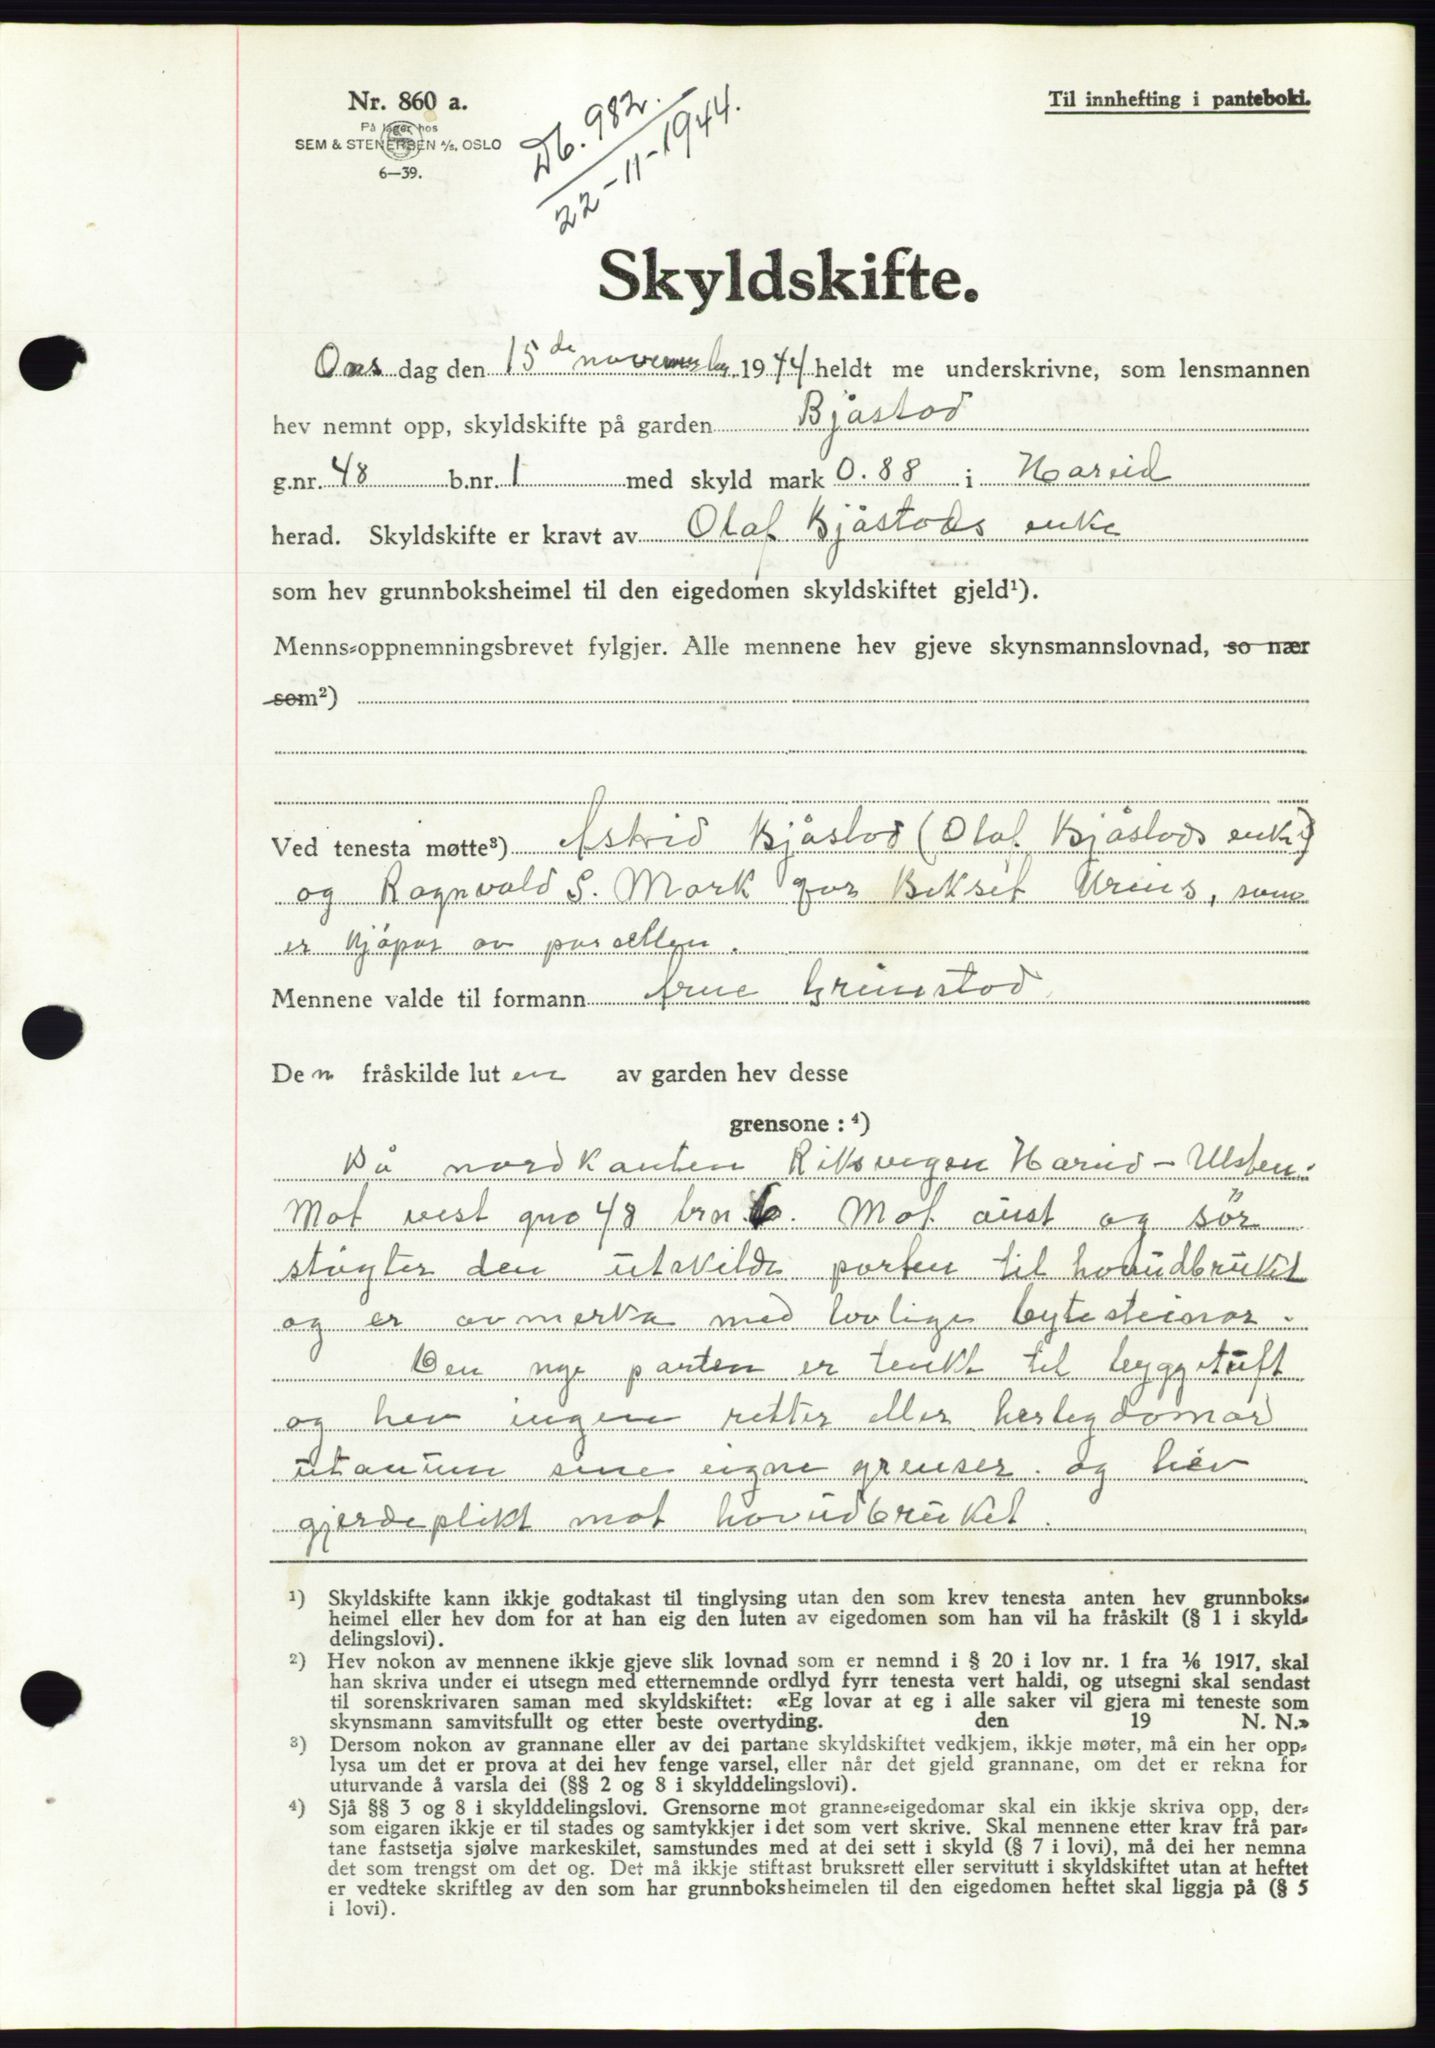 Nr. 860 a.
På lager hos
SEM & STENERSEN A/S, OSLO
6—39.
Db. 982.
22-11-1944.
Til innhefting i panteboki.
Skyldskifte.
Onsdag den 15de november 1944 heldt me underskrivne, som lensmannen
hev nemnt opp, skyldskifte på garden Bjåstad
g.nr. 48 b.nr. 1 med skyld mark 0.88 i Hareid
herad. Skyldskifte er kravt av Olaf Bjåstads enke
som hev grunnboksheimel til den eigedomen skyldskiftet gjeld¹).
Menns-oppnemningsbrevet fylgjer. Alle mennene hev gjeve skynsmannslovnad, so nær
som²)
Ved tenesta møtte³) Astrid Bjåstad (Olaf Bjåstads enke)
og Ragnvald S. Mork for, som
er kjöpar av parsellen.
Mennene valde til formann Arne Grimstad
Den fråskilde luten av garden hev desse
grensone : ⁴)
På nordkanten Riksvegen Hareid - Ulstein.
Mot vest gno 48 brn. 6. Mot aust og sör
stöyter den utskilde parten til hovudbruket
og er avmerka med lovlige bytesteinar.
Den nye parten er tenkt til byggetuft
og hev ingen retter eller herlegdomar
utanum sine eigne grenser. og hev
gjerdeplikt mot hovudbruket.
¹) Skyldskifte kann ikkje godtakast til tinglysing utan den som krev tenesta anten hev grunnboks-
heimel eller hev dom for at han eig den luten av eigedomen som han vil ha fråskilt (§ 1 i skyld-
delingslovi).
²) Hev nokon av mennene ikkje gjeve slik lovnad som er nemnd i § 20 i lov nr. 1 fra 1/6 1917, skal
han skriva under ei utsegn med etternemnde ordlyd fyrr tenesta vert haldi, og utsegni skal sendast
til sorenskrivaren saman med skyldskiftet: «Eg lovar at eg i alle saker vil gjera mi teneste som
skynsmann samvitsfullt og etter beste overtyding. den 19 N. N.»
³) Dersom nokon av grannane eller av dei partane skyldskiftet vedkjem, ikkje møter, må ein her opp-
lysa um det er prova at dei hev fenge varsel, eller når det gjeld grannane, om det er rekna for
uturvande å varsla dei (§§ 2 og 8 i skylddelingslovi).
⁴) Sjå §§ 3 og 8 i skylddelingslovi. Grensorne mot granne-eigedomar skal ein ikkje skriva opp, der-
som eigaren ikkje er til stades og samtykkjer i det som vert skrive. Skal mennene etter krav frå par-
tane fastsetja sjølve markeskilet, samstundes med at dei sett i skyld (§ 7 i lovi), må dei her nemna
det som trengst om det og. Det må ikkje stiftast bruksrett eller servitutt i skyldskiftet utan at heftet
er vedteke skriftleg av den som har grunnboksheimelen til den eigedomen heftet skal liggja på (§ 5
i lovi).